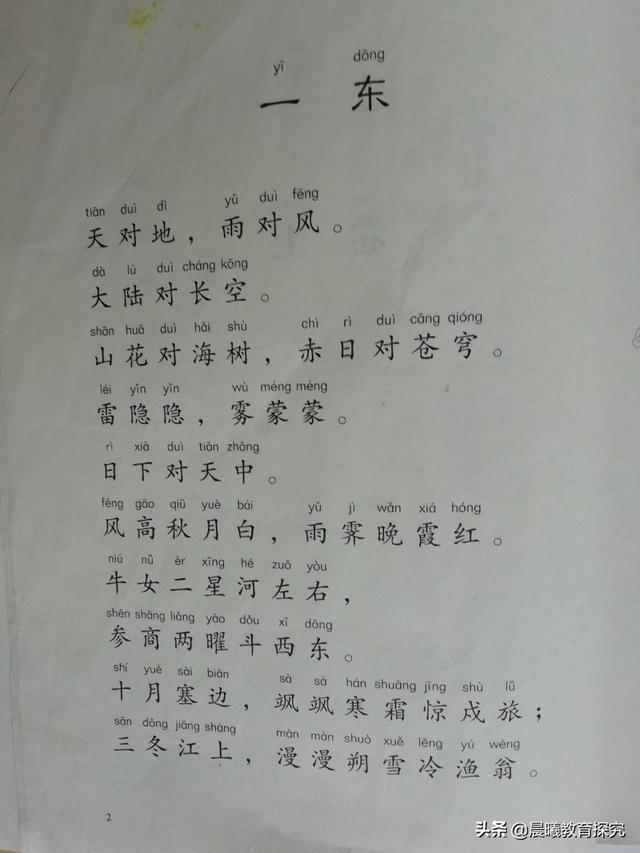 yī dōng
一 东
tiān duì dì yǔ duì fēng
天对地，雨对风。
dà lù duì cháng kōng
大陆对长空。
shān huā duì hǎi shù chì rì duì cāng qióng
山花对海树，赤日对苍穹。
léi yǐn yǐn wù méng méng
雷隐隐，雾蒙蒙。
rì xià duì tiān zhōng
日下对天中。
fēng gāo qiū yuè bái yǔ jì wǎn xiá hóng
风高秋月白，雨霁晚霞红。
niú nǚ èr xīng hé zuǒ yòu
牛女二星河左右，
shēn shāng liǎng yào dǒu xī dōng
参商两曜斗西东。
shí yuè sài biān sà sà hán shuāng jīng shù lǚ
十月塞边，飒飒寒霜惊戍旅；
sān dōng jiāng shàng màn màn shuò xuě lěng yú wēng
三冬江上，漫漫朔雪冷渔翁。
2
头条 @晨曦教育探究